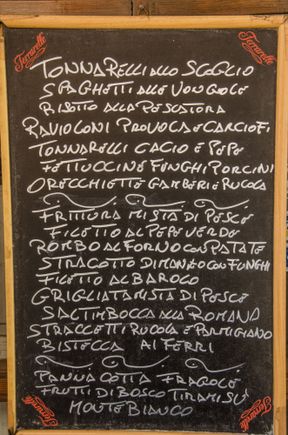 Ferrarelle Ferrarelle
TONNARELLI allo SCOGLIO
SPAGHETTI ALLE VONGOLE
RISOTTO ALLA PESCATORA
RAVIOLONI PROVOLA E CARCIOFI
TONNARELLI CACIO E PEPE
FETTUCCINE FUNGHI PORCINI
ORECCHIETTE GAMBERI E RUCOLA
FRITTURA MISTA DI PESCE
FILETTO AL PEPE VERDE
ROMBO AL FORNO CON PATATE
STRACOTTO DI MANZO CON FUNGHI
FILETTO AL BAROLO
GRIGLIATA MISTA DI PESCE
SALTIMBOCCA ALLA ROMANA
STRACCETTI RUCOLA E PARMIGIANO
BISTECCA AI FERRI
PANNA COTTA FRAGOLE
FRUTTI DI BOSCO TIRAMISÙ
MONTE BIANCO
Ferrarelle Ferrarelle